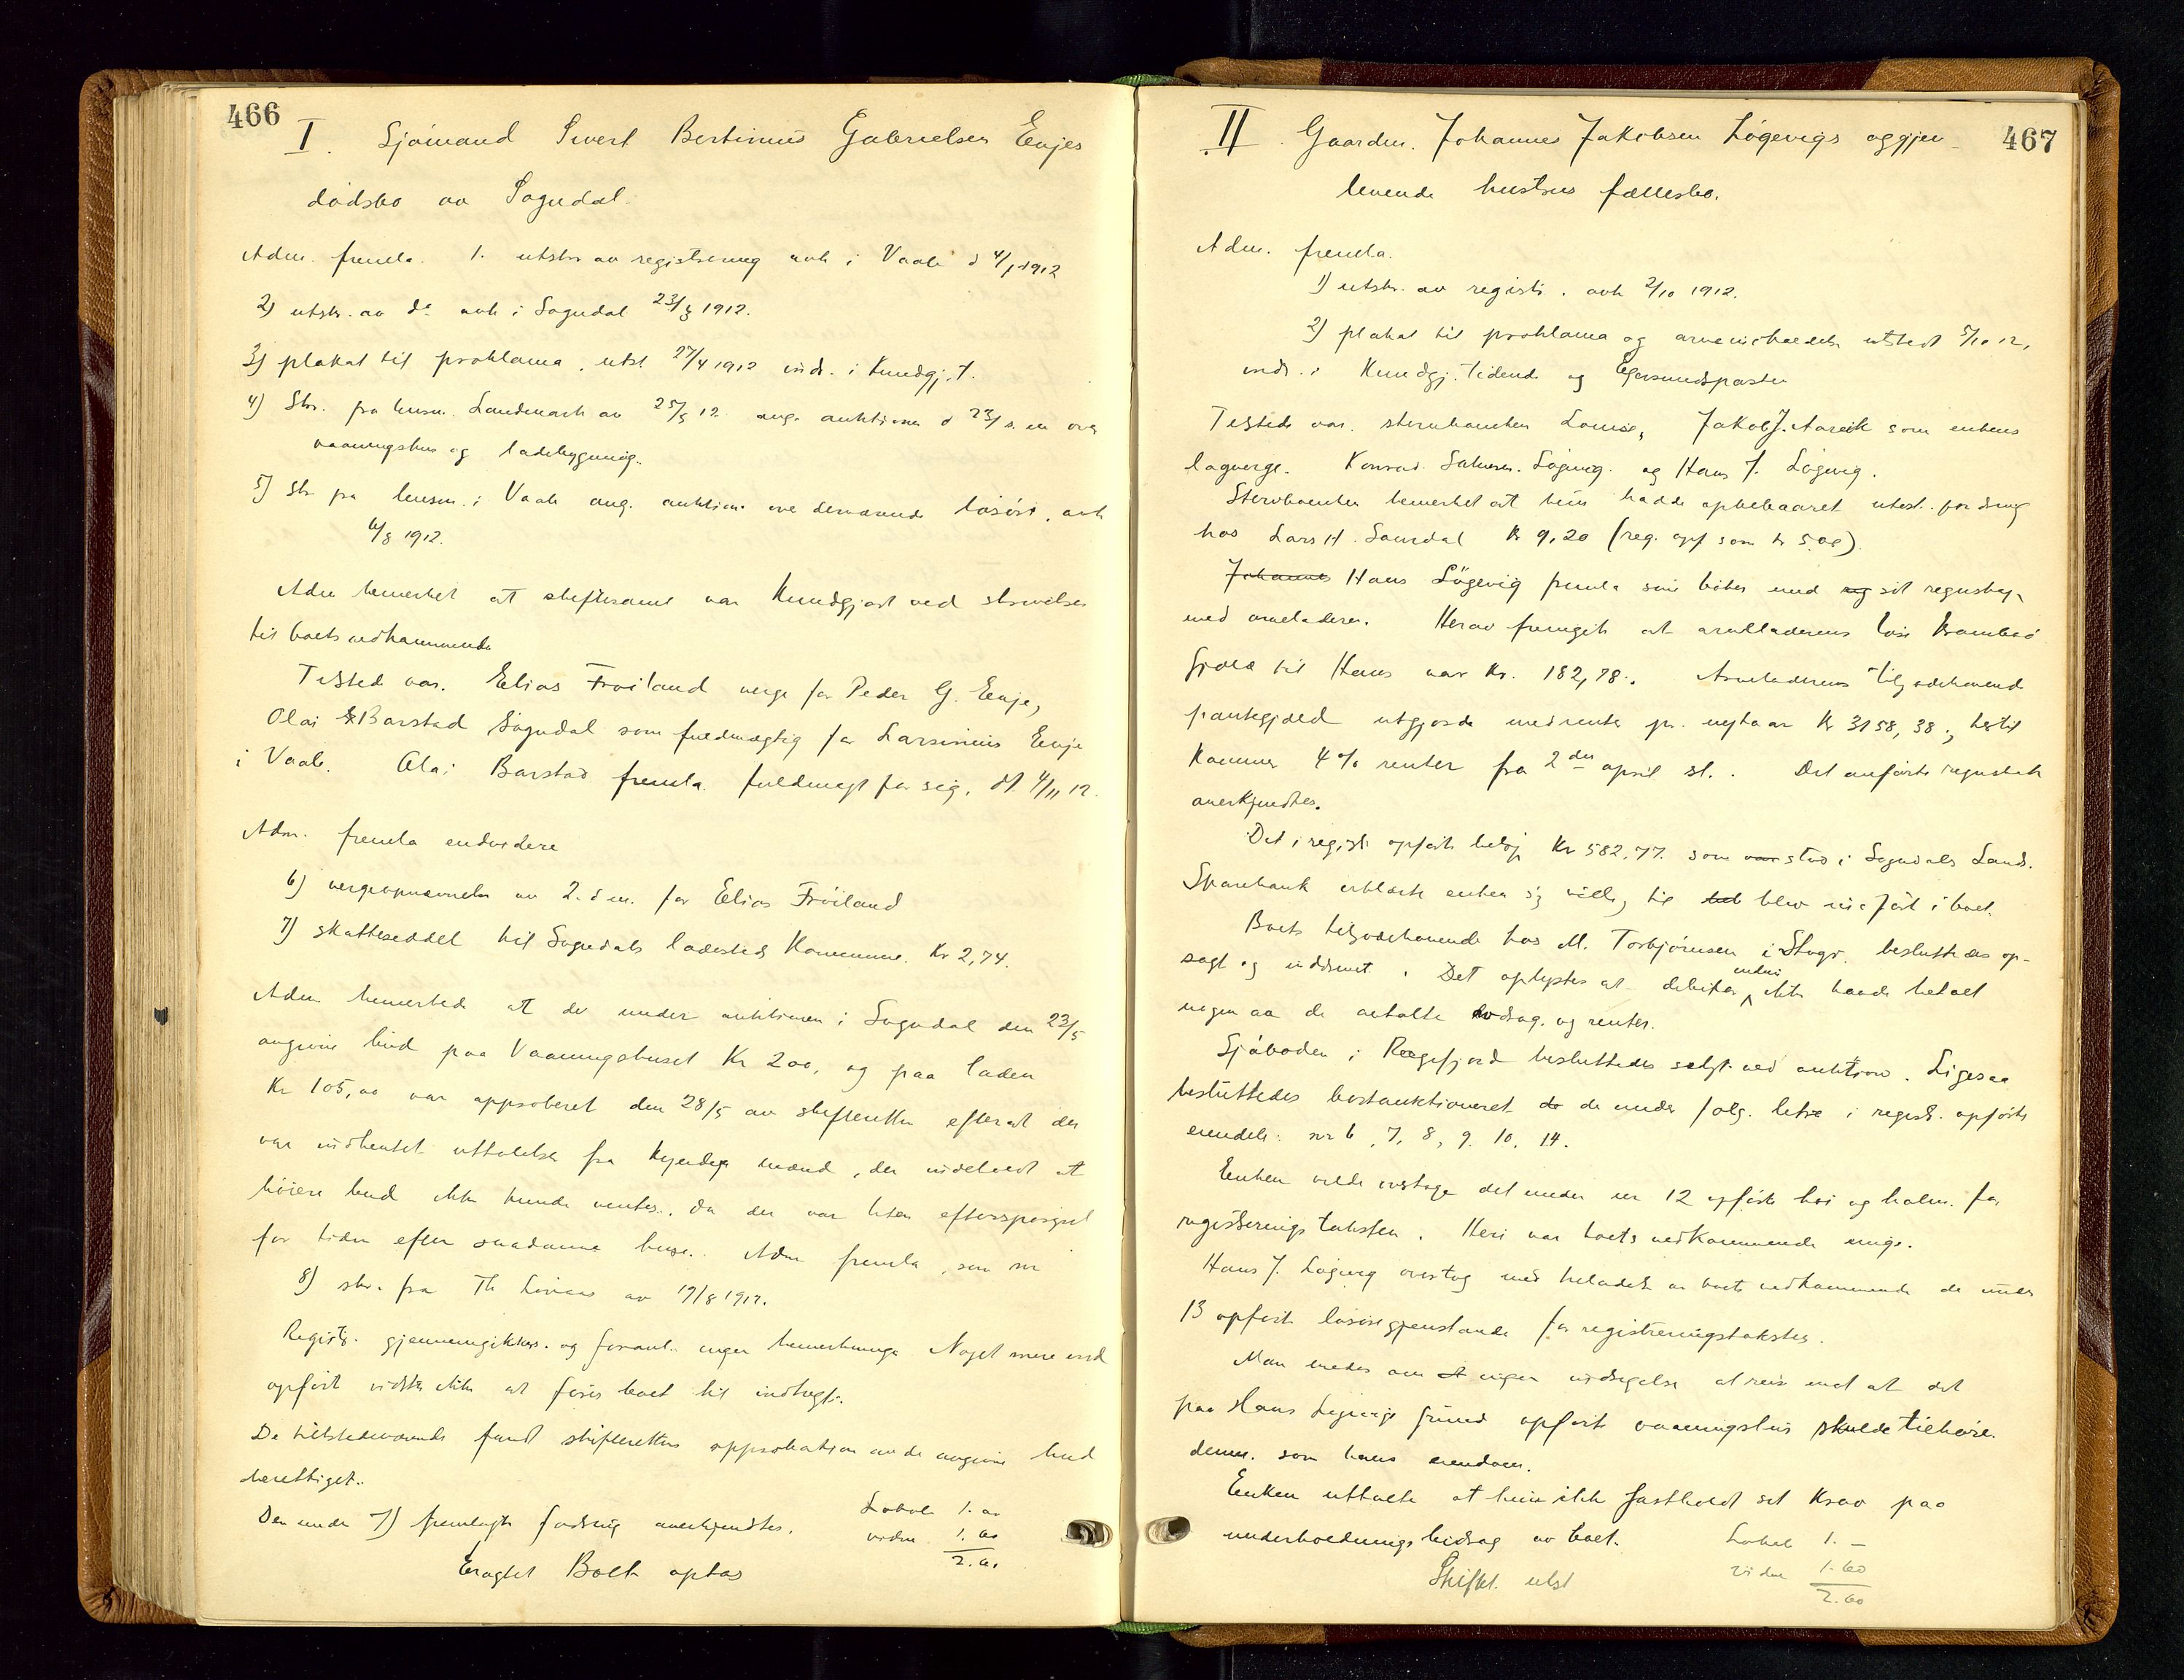 466
I. Sjömand Sivert Bertinius Gabrielsen Eejes
dödsbo av Sogndal.
Adm. fremla. 1. utskr av registrering avh i Vaals d 4/1 1912
2) utskr. av do avh i Sogndal 23/3 1912.
3) plakat til proklama, utst. 27/4 1912 indr. i Kundgj. t.
4) Skr. fra lensm. Landmark av 25/5 12 ang. auktionen d 23/s. m over
vaaningshus og ladebygning.
5) Skr fra lensm. i Vaals ang. auktion over derværende lösöre, avh
6/8 1912.
Adm bemerket at skiftesaml var Kundgjort ved skrivelser
til boets vedkommende
Tilsted var. Elias Fröiland verge for Peder G. Eeje,
Olai Barstad Sogndal som fuldmægtig for Larsinius Eeje
i Vaals. Olai Barstad fremla. fuldmagt for sig, dt. 4/11 12.
Adm. fremla endvidere
6) vergeopnævnelse av 2. d m. for Elias Fröiland
7) skatteseddel til Sogndals ladesteds Kommune. Kr 2,74.
Adm bemerkede at de under auktionen i Sogndal den 23/5
avgivne bud paa Vaaningshuset Kr 200, og paa laden
Kr 105,00 var approberet den 28/5 av skifteretten efterat der
var indhentet uttalelse fra kyndige mænd, der indeholdt at
höiere bud ikke kunde ventes, da der var liten efterspörgsel
for tiden efter saadanne huse. Adm fremla, som nr
8) skr. fra Th av 19/8 1912.
Registr. gjennemgikkes og foranl. ingen bemerkninger. Noget mere end
opfört vidstes ikke at före boet til indtægt.
De tilstedeværende fandt skifterettens approbation av de avgivne bud
berettiget.
Den under 7) fremlagte fordring anerkjendtes.
Lokale 1. 00
vidne 1. 60
2. 60
Eragtet Boet optas
467
II. Gaardm. Johannes Jakobsen Lögevigs og gjen-
levende hustrus fællesbo.
Adm. fremla.
1) utskr. av registr. avh 2/10 1912.
2) plakat til proklama og arveindkaldelse utstedt 5/10 12,
indr. i Kundgj. tidende og Egersundsposten
Tilstede var. stervboenken Louise, Jakob J. Aareik som enkens
lagverge. Konrad Salves. Lögevig. og Hans J. Lögevig.
Stervboenken bemerket at hun hadde opbebaaret utest. fordring
hos Lars H. Kr 9,20 (reg. opf som kr 5.00).
Johannes Hans Lögevig fremla sin böker med og sit regnskap
med arveladeren. Herav fremgik at arveladerens löse krambod
gjæld til Hans var Kr. 182,78. Arveladerens tilgodehavende
pantegjæld utgjorde med renter pr. nytaar Kr 3158,38; hertil
kommer 4% renter fra 2den april sl. Det anförte regnskab
anerkjendtes.
Det i registr. opfört belöp Kr 582,77. som var stod i Sogndals Lands.
Sparebank erklærte enken sig villig til blev indfört i boet.
Boets tilgodehavende hos M. Torbjörnsen i Stogr. besluttedes op-
sagt og inddrevet. Det oplystes at debitor endnu ikke hadde betalt
nogen av de avtalte avdrag og renter.
Sjöboden i Rægefjord besluttedes solgt ved auktion. Ligesaa
besluttedes bortauktioneret de under fölg. i registr. opförte
eiendele: nr 6, 7, 8, 9. 10. 14.
Enken vilde overtage det under nr 12 opförte höi og halm. for
registrerings taksten. Heri var boets vedkommende enige.
Hans J. Lögevig overtog med tilladelse av boets vedkommende de under
13 opförte lösöregjenstande for registreringstaksten.
Man enedes om at ingen indsigelse at reise mot at det
paa Hans Lögevigs grund opförte vaaningshus skulde tilhöre
denne som hans eiendom.
Enken uttalte at hun ikke fastholdt sit krav paa
underholdningsbidrag av boet.
Lokale 1. –
vidne 1. 60
2. 60
Skiftet utst